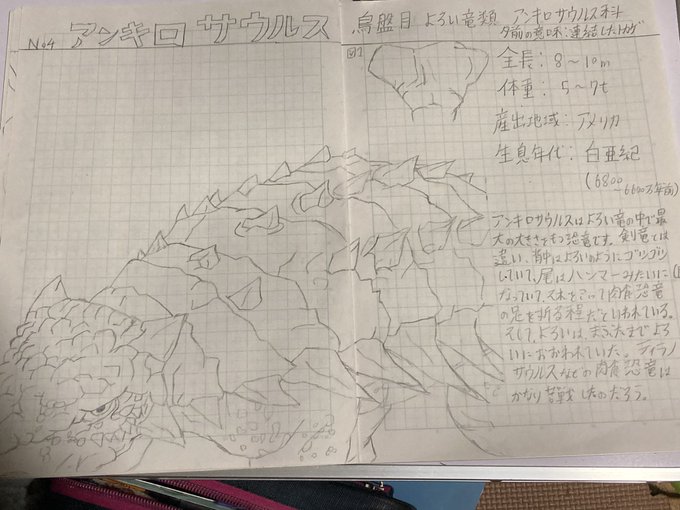 No4 アンキロサウルス
鳥盤目 よろい竜類 アンキロサウルス科
名前の意味:連結したトカゲ
図1
全長:8〜10m
体重:5〜7t
産出地域:アメリカ
生息年代:白亜紀
(6800
〜6600万年前)
アンキロサウルスはよろい竜の中で最
大の大きさをもつ恐竜です。剣竜とは
違い、背中はよろいのようにゴツゴツ
していて、尾はハンマーみたいに
なっていて、それをつかって肉食恐竜
の足を折る程だといわれている。
そして、よろいは、まぶたまでよろ
いにおおわれていた。ティラノ
サウルスなどの肉食恐竜は
かなり苦戦したのだろう。